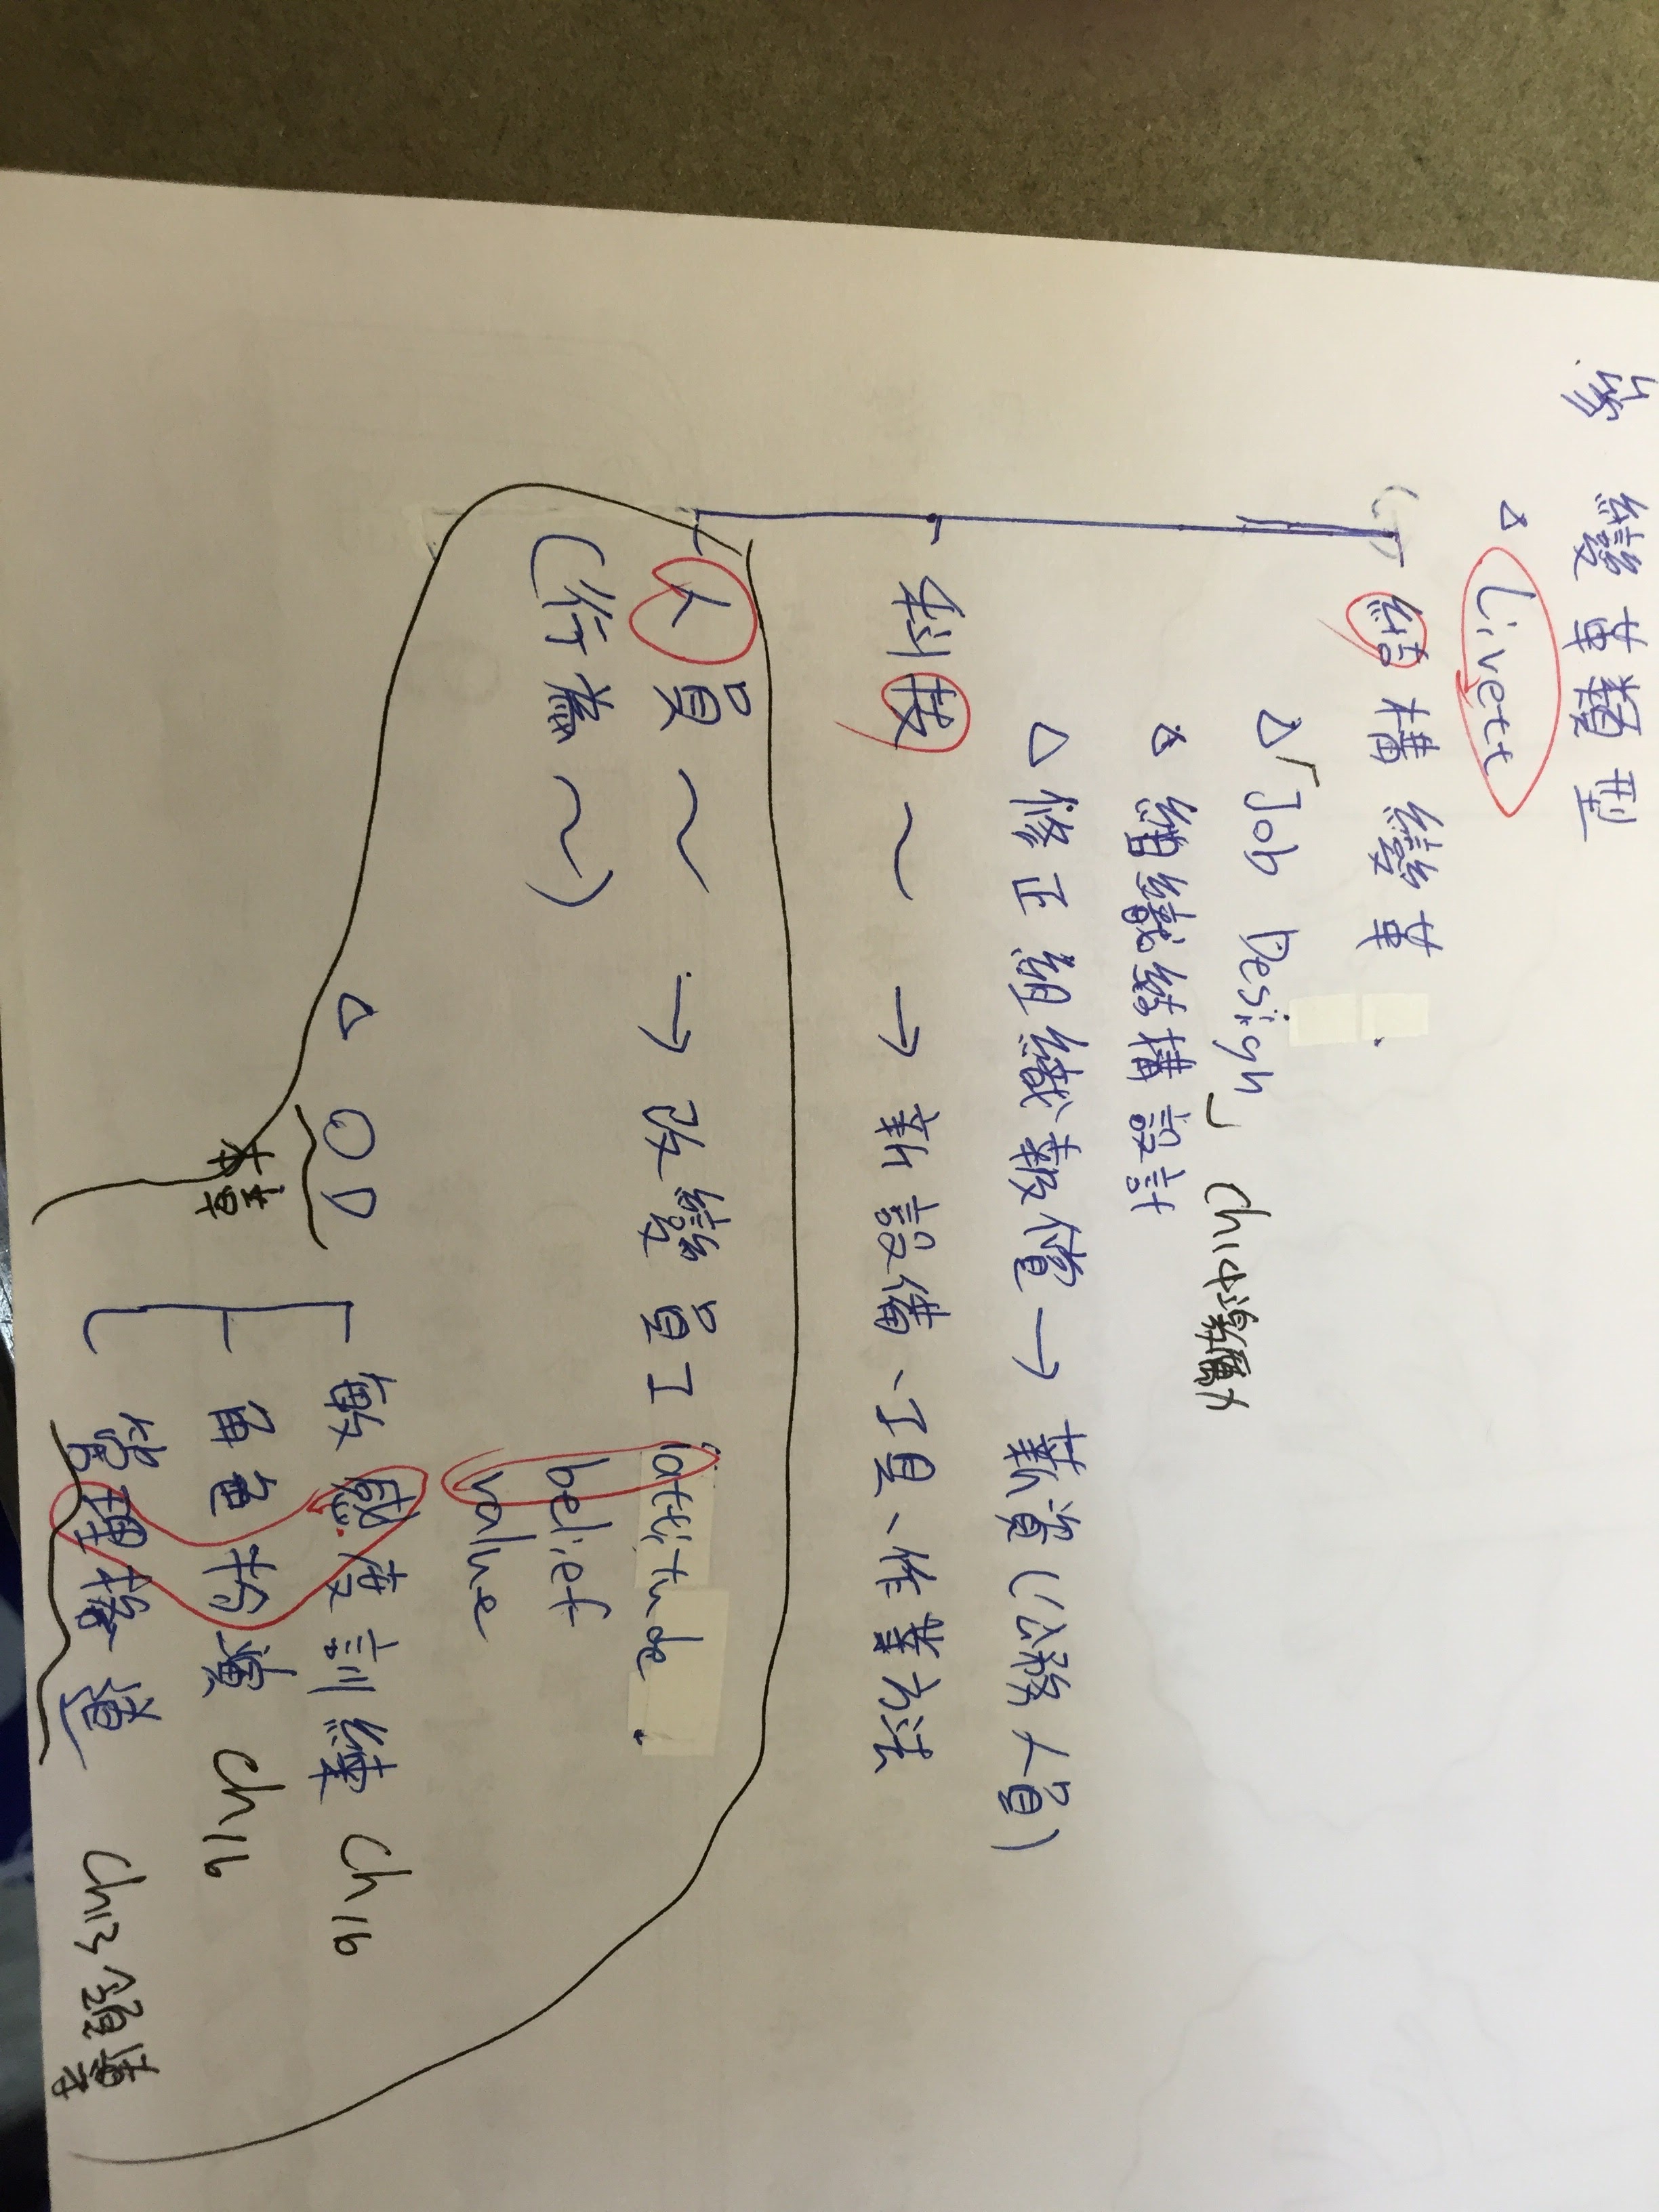 變革類型
△ Livett
結構變革
△「Job Design」 Ch14激勵
△ 組織結構設計
△ 修正組織報償 → 薪資(公務人員)
科技 ~ → 新設備、工具、作業方法
人員 ~ → 改變員工 attitude
(行為 ~) belief
value
△ OD 敏感度訓練 Ch16
本章 角色扮演 Ch16
管理格道 Ch13領導